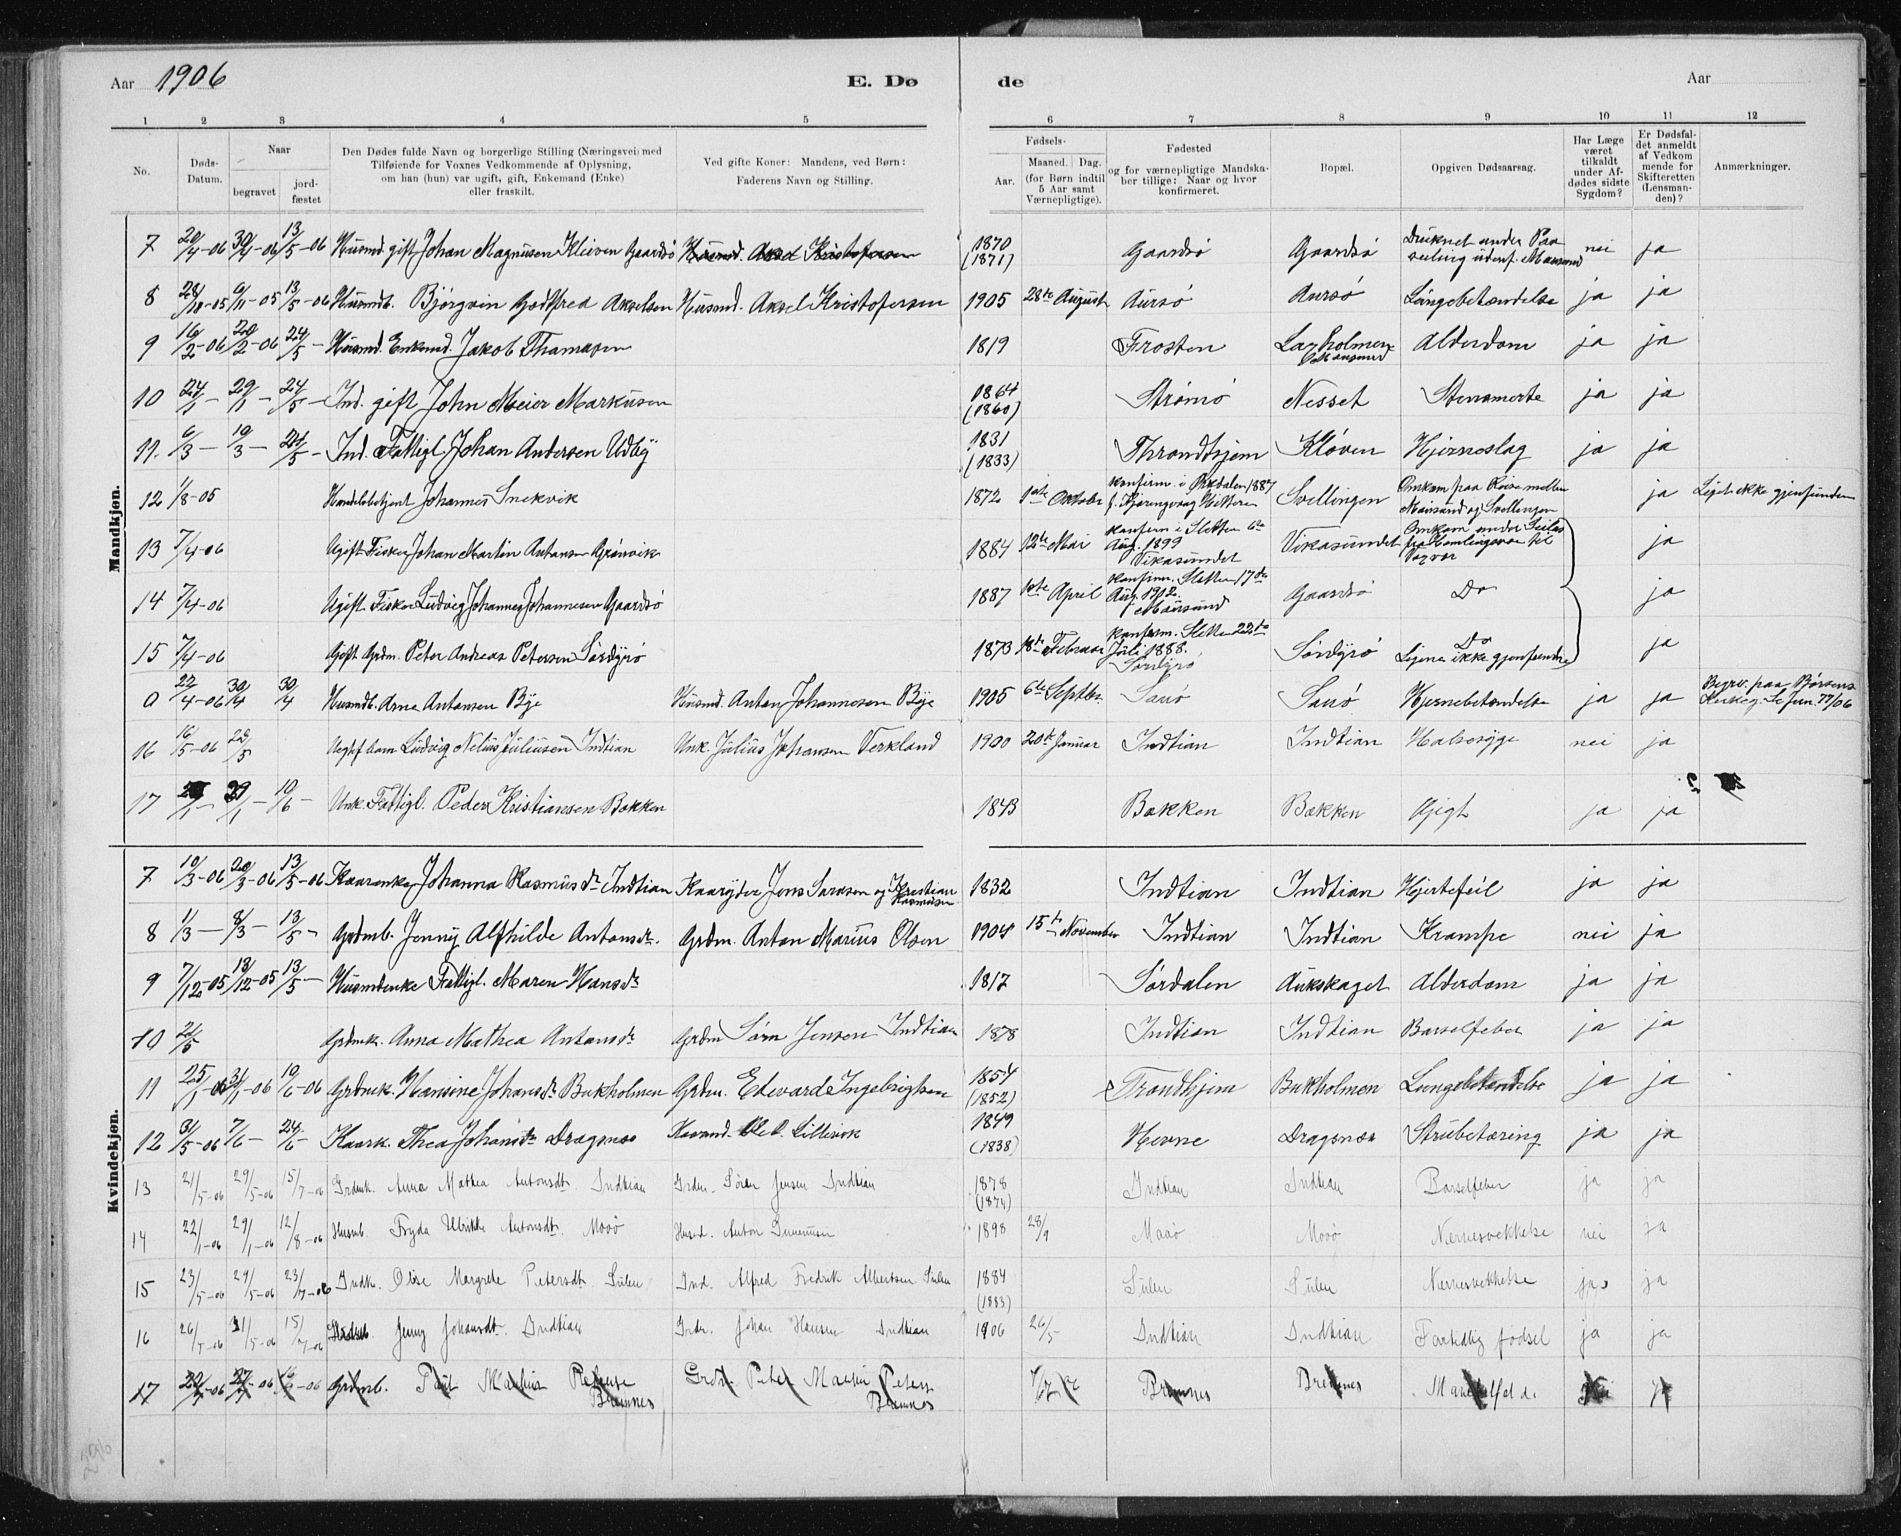 Aar 1906 E. Dø de Aar
1 2 3 4 5 6 7 8 9 10 11 12
No.
Døds-
Datum.
Naar
begravet
jord-
fæstet
Den Dødes fulde Navn og borgerlige Stilling (Næringsvei) med
Tilføiende for Voxnes Vedkommende af Oplysning,
om han (hun) var ugift, gift, Enkemand (Enke)
eller fraskilt.
Ved gifte Koner: Mandens, ved Børn:
Faderens Navn og Stilling.
Fødsels-
Aar.
Maaned. Dag.
(for Børn indtil
5 Aar samt
Værnepligtige).
Fødested
og for værnepligtige Mandska-
ber tillige: Naar og hvor
konfirmeret.
Bopæl.
Opgiven Dødsaarsag.
Har Læge
været
tilkaldt
under Af-
dødes sidste
Sygdom?
Er Dødsfal-
det anmeldt
af Vedkom
mende for
Skifteretten
(Lensman-
den)?
Anmærkninger.
Mandkjøn.
7 30/4-06 13/5-06 Husmd. gift Johan Magnusen Kleven Gaardsø 1870 (1871) Gaardsø Gaardsø nei ja
8 28/10-05 13/5-06 Husmdb. Bjørgvin Godtfred Akselsen Husmd. Aksel Kristofersen 1905 28de August Aursø Aursø Lungebetændelse ja ja
9 16/2-06 20/2-06 24/5- Husmd. Enkemd. Jakob Thomasen 1819 Frosten Alderdom ja ja
10 24/1- 29/1- 24/5- Ind. gift John Meier Markusen 1864 (1860) Strømø Nesset Stensmerte ja ja
11. 6/3- 19/3- 24/5- Ind. Fattigl. Johan Andersen Udby 1831 (1833) Throndhjem Kløven Hjerneslag ja ja
12 1/8-05 Handelsbetjent Johannes Snekvik 1872 1ste Oktober konfirm. i Ørkdalen 1887 Svellingen Omkom paa Reise mellem Mausund og Svellingen ja Liget ikke gjenfunden
13 7/4-06 Ugift Fisker Johan Martin Antonsen Grønvik 1884 12te Mai konfirm i Sletten 6te Aug. 1899 Vikasundet Vikasundet Omkom under Seilas ja
14 7/4-06 Ugift Fisker Ludvig Johannes Johannesen Gaardsø 1887 1ste April konfirm. Sletten 17de Aug. 1912. Mausund Gaardsø Do ja
15 7/4-06 Gift Grdm. Peter Andreas Petersen Sørdyrø 1873 18de Februar konfirm. Sletten 22de Juli 1888. Sørdyrø Sørdyrø Do Ligene ikke gjenfundne ja
0 22/4-06 30/4 30/4 Husmdb. Arne Antonsen Bye Husmd. Anton Johannesen Bye 1905 6te Septbr. Sauø Sauø Hjernebetændelse ja ja Begrv. paa Børsens Kirkeg. Se Jun. 77/06
16 16/5-06 22/5 Ugift barn Ludvig Nelius Juliusen Indtian Unk. Julius Johansen Verkland 1900 20de Januar Indtian Indtian Halssyge nei ja
17 29/1- 10/6- Unk. Fattigl. Peder Kristiansen Bakken 1843 Bakken Bakken Gigt ja ja
Kvindekjøn.
7 10/3-06 20/3-06 13/5-06 Kaarenke Johanna Rasmusdr Indtian Kaaryder Jens Sørensen og Kristian Rasmusen 1832 Indtian Indtian Hjertefeil ja ja
8 1/3- 8/3- 13/5- Grdmb. Jenny Alfhilde Antonsdr. Grdm. Anton Marius Olsen 1904 15de November Indtian Indtian Krampe nei ja
9 7/12-05 13/12-05 13/5- Husmdenke Fattigl. Maren Hansdr 1817 Sørdalen Aukskaget Alderdom ja ja
10 21/5 Grdmk. Anna Mathea Antonsdr Grdm Søren Jensen Indtian 1878 Indtian Indtian Barselfeber ja ja
11 25/1-06 31/1-06 10/6-06 Grdmk. Hansine Johansdr Bukholmen Grdm. Edvard Ingebrigtsen 1854 (1852) Trondhjem Bukholmen Lungebetændelse ja ja
12 31/5-06 7/6- 24/6- Kaark. Thea Johansdr Dragsnes Kaarmd. 1849 (1838) Hevne Dragsnæs Strubetæring ja ja
13 21/5-06 29/5-06 15/7-06 Grdmk. Anna Mathea Antonsdtr. Indtian Grdm. Søren Jensen Indtian 1878 (1874) Indtian Indtian Barselfeber ja ja
14 22/1-06 29/1-06 12/8-06 Husmb. Fryda Ulrikke Antonsdt. Moø Husmd. Anton 1898 28/9 Maaø Moø Nervesvekkelse nei ja
15 23/5-06 29/5-06 23/7-06 Indk. Olise Margrete Petersdt. Sulen Ind. Alfred Fredrik Albertsen Sulen 1884 (1883) Sulen Sulen Nervesvekkelse ja ja
16 31/5-06 15/7-06 Jenny Johansdt. Indtian Grdm. Johan Hansen Indtian 1906 26/5 Indtian Indtian Fortidlig fødsel ja ja
17 Grdmb. Bremnes Grdm. Peter Martin Peters. Bremnes Bremnes Bremnes